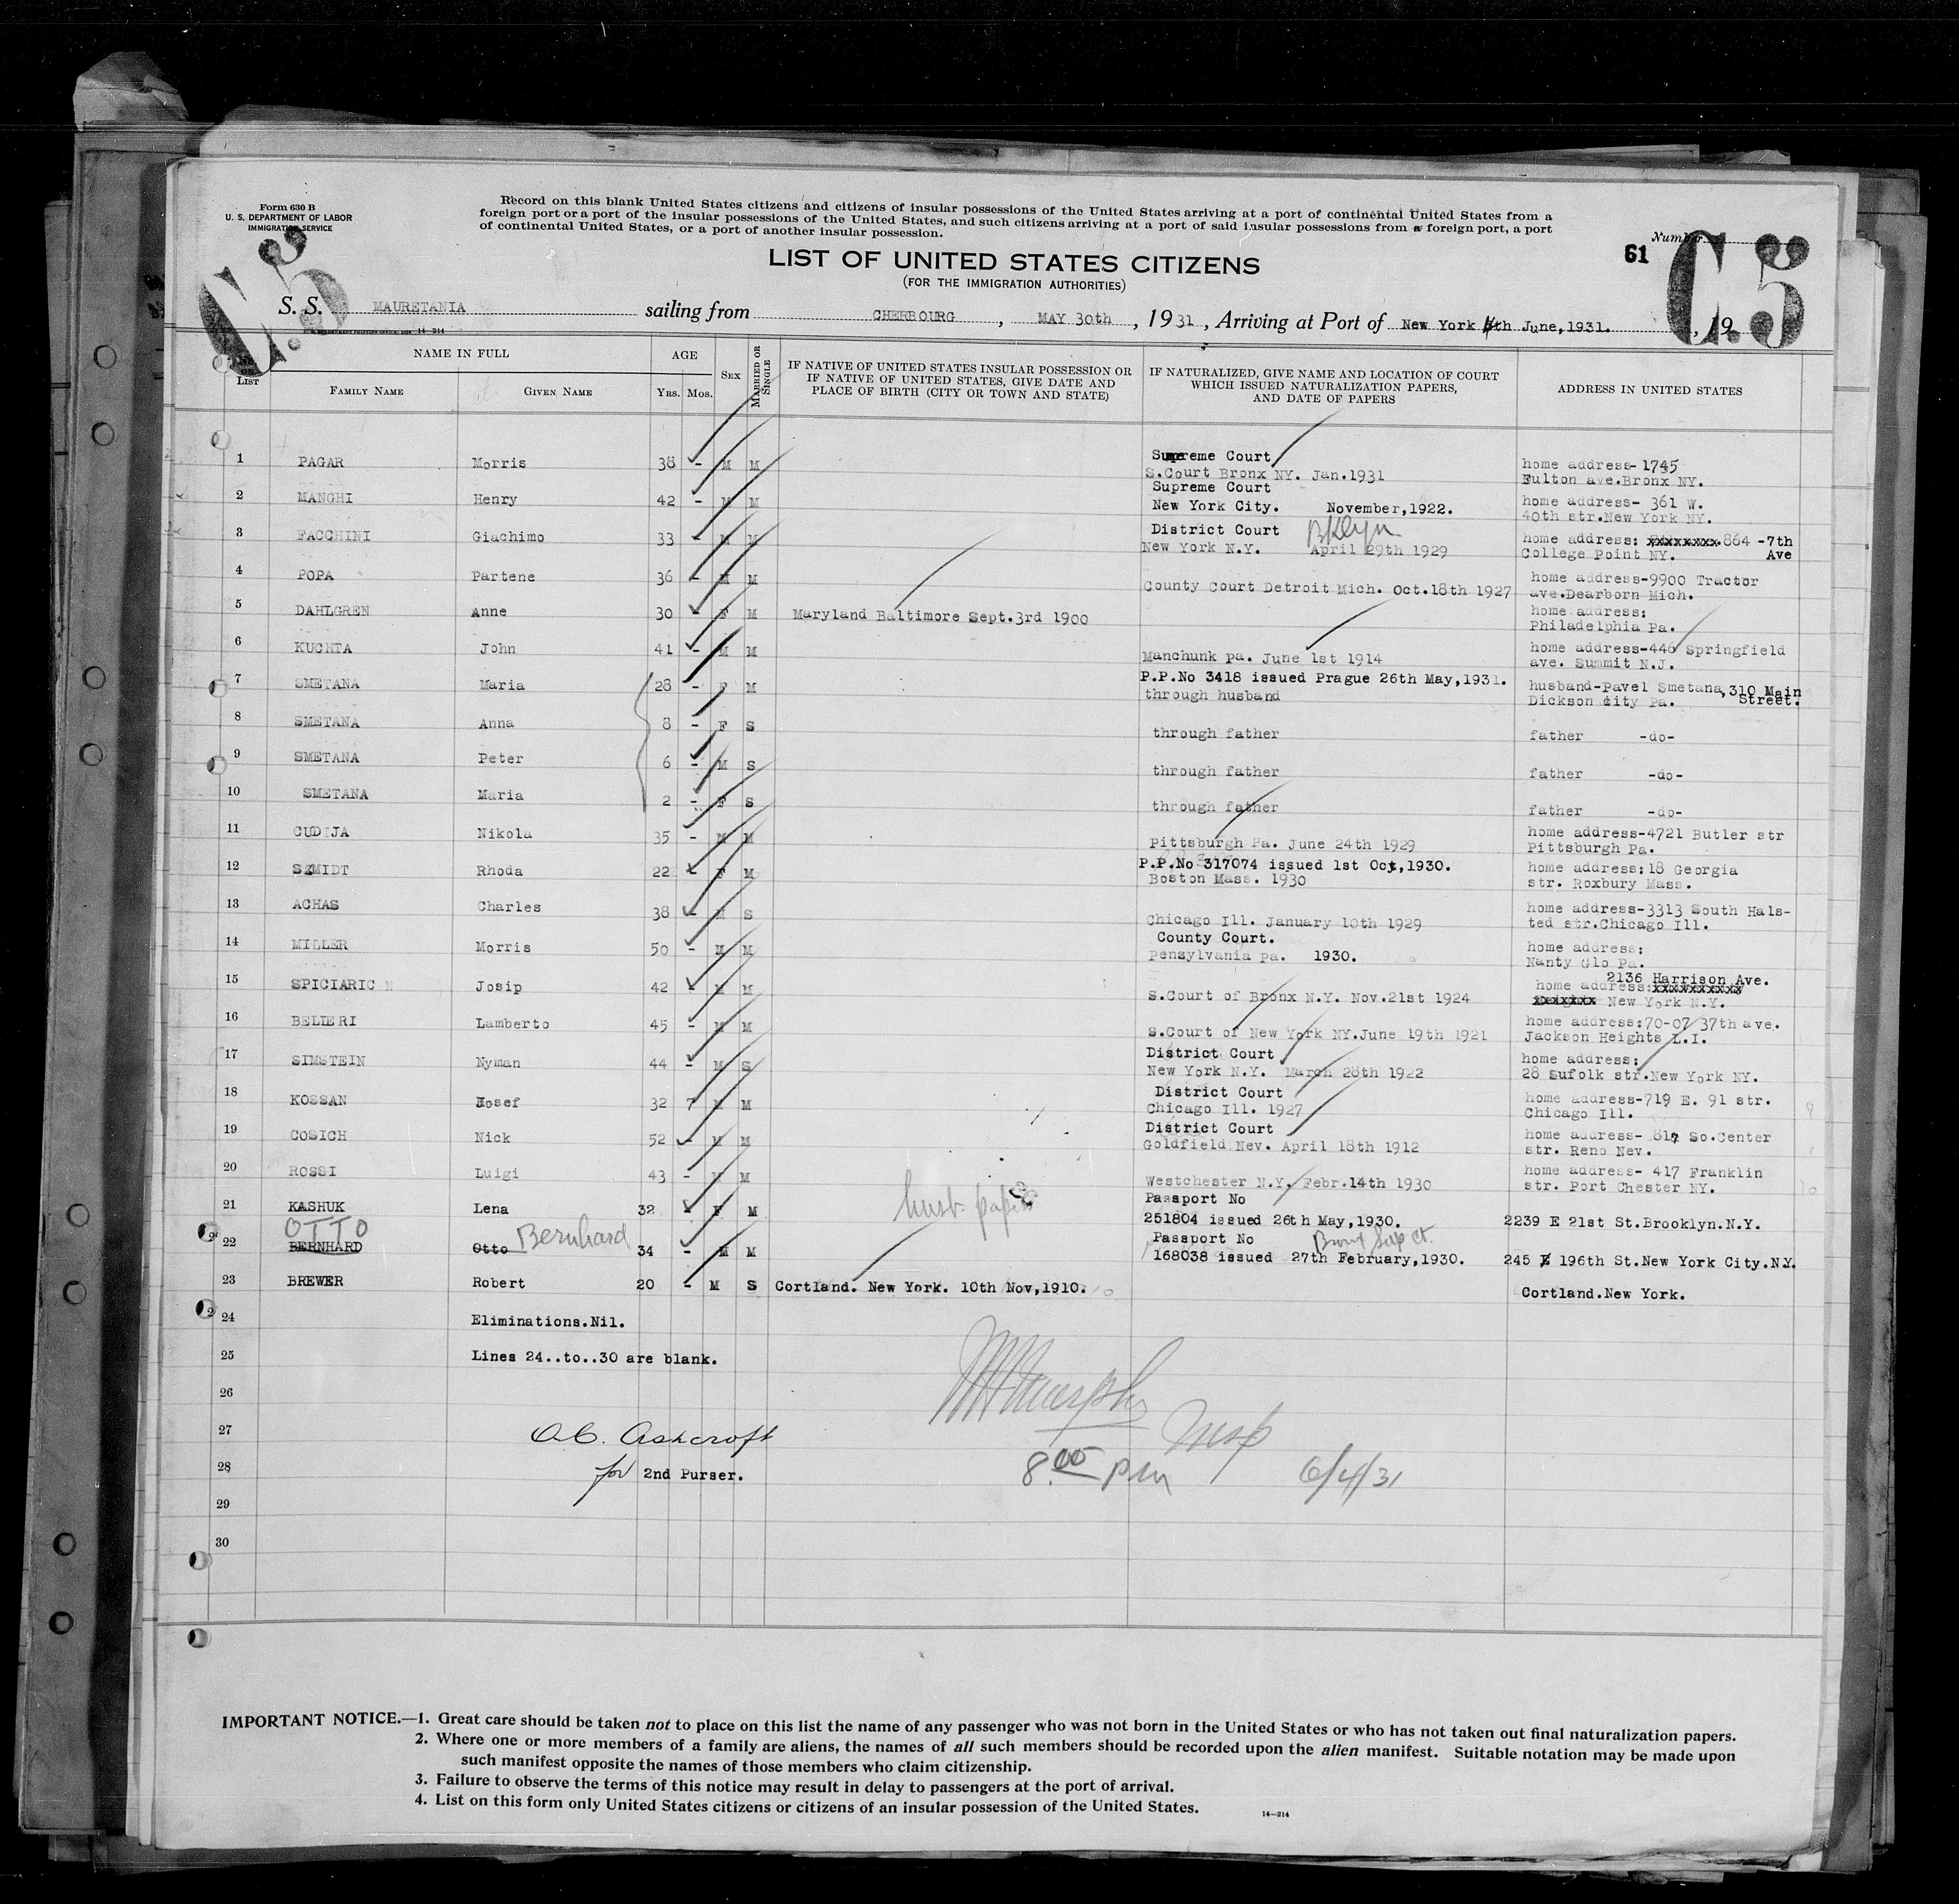 Form 630 B
U. S. DEPARTMENT OF LABOR
IMMIGRATION SERVICE
Record on this blank United States citizens and citizens of insular possessions of the United States arriving at a port of continental United States from a
foreign port or a port of the insular possessions of the United States, and such citizens arriving at a port of said insular possessions from a foreign port, a port
of continental United States, or a port of another insular possession.
LIST OF UNITED STATES CITIZENS
(FOR THE IMMIGRATION AUTHORITIES)
61 Number C5
C5
S. S. MAURETANIA sailing from CHERBOURG, MAY 30th, 1931, Arriving at Port of New York 4th June, 1931., 19
14-214
NAME IN FULL AGE SEX MARRIED OR SINGLE
LIST FAMILY NAME GIVEN NAME Yrs. Mos.
IF NATIVE OF UNITED STATES INSULAR POSSESSION OR
IF NATIVE OF UNITED STATES, GIVE DATE AND
PLACE OF BIRTH (CITY OR TOWN AND STATE)
IF NATURALIZED, GIVE NAME AND LOCATION OF COURT
WHICH ISSUED NATURALIZATION PAPERS,
AND DATE OF PAPERS
ADDRESS IN UNITED STATES
Supreme Court
1 PAGAR Morris 38 - M M S.Court Bronx NY. Jan.1931 home address-1745
Fulton ave.Bronx NY.
Supreme Court
2 MANGHI Henry 42 - M M New York City. November,1922. home address- 361 W.
40th str.New York NY.
District Court BKlyn
3 FACCHINI Giachimo 33 - M M New York N.Y. April 29th 1929 home address: xxxxxxxx 864 -7th
College Point NY. Ave
4 POPA Partene 36 - M M County Court Detroit Mich. Oct.18th 1927 home address-9900 Tractor
ave.Dearborn Mich.
5 DAHLGREN Anne 30 - F M Maryland Baltimore Sept.3rd 1900 home address:
Philadelphia Pa.
6 KUCHTA John 41 - M M Manchunk pa. June 1st 1914 home address-446 Springfield
ave. Summit N.J.
P.P.No 3418 issued Prague 26th May,1931.
7 SMETANA Maria 28 - F M through husband husband-Pavel Smetana, 310 Main
Dickson city Pa. Street.
8 SMETANA Anna 8 - F S through father father -do-
9 SMETANA Peter 6 - M S through father father -do-
10 SMETANA Maria 2 - F S through father father -do-
11 CUDIJA Nikola 35 - M M Pittsburgh Pa. June 24th 1929 home address-4721 Butler str
Pittsburgh Pa.
P.P.No 317074 issued 1st Oct,1930.
12 SEMIDT Rhoda 22 - F M Boston Mass. 1930 home address:18 Georgia
str. Roxbury Mass.
13 ACHAS Charles 38 - M S Chicago Ill. January 10th 1929 home address-3313 South Hals-
ted str.Chicago Ill.
County Court.
14 MILLER Morris 50 - M M penzylvania pa. 1930. home address:
Nanty Glo Pa.
2136 Harrison Ave.
15 SPICIARIC Josip 42 - M M S.Court of Bronx N.Y. Nov.21st 1924 home address:xxxxxxxxxx
xxxxxxx New York N.Y.
16 BELIERI Lamberto 45 - M M S.Court of New York NY.June 19th 1921 home address:70-07 37th ave.
Jackson Heights L.I.
District Court
17 SIMSTEIN Nyman 44 - M S New York N.Y. March 28th 1922 home address:
28 Sufolk str.New York NY.
District Court
18 KOSSAN Josef 32 7 M M Chicago Ill. 1927 home address-719 E. 91 str.
Chicago Ill.
District Court
19 COSICH Nick 52 - M M Goldfield Nev. April 18th 1912 home address- 817 So.Center
str. Reno Nev.
20 ROSSI Luigi 43 - M M Westchester N.Y. Febr.14th 1930 home address- 417 Franklin
str. Port Chester NY.
Passport No
21 KASHUK Lena 32 - F M husb. papers 251804 issued 26th May,1930. 2239 E 21st St.Brooklyn.N.Y.
OTTO Bernhard Passport No Bronx Sup Ct.
22 BERNHARD Otto 34 - M M 168038 issued 27th February,1930. 245 E 196th St.New York City.N.Y.
23 BREWER Robert 20 - M S Cortland. New York. 10th Nov,1910. Cortland.New York.
24 Eliminations.Nil.
25 Lines 24..to..30 are blank.
26
27 O.C. Ashcroft
28 for 2nd Purser.
29
30
Murphy
Insp
8.00 pm 6/4/31
IMPORTANT NOTICE.—1. Great care should be taken not to place on this list the name of any passenger who was not born in the United States or who has not taken out final naturalization papers.
2. Where one or more members of a family are aliens, the names of all such members should be recorded upon the alien manifest. Suitable notation may be made upon
such manifest opposite the names of those members who claim citizenship.
3. Failure to observe the terms of this notice may result in delay to passengers at the port of arrival.
4. List on this form only United States citizens or citizens of an insular possession of the United States.
14—214